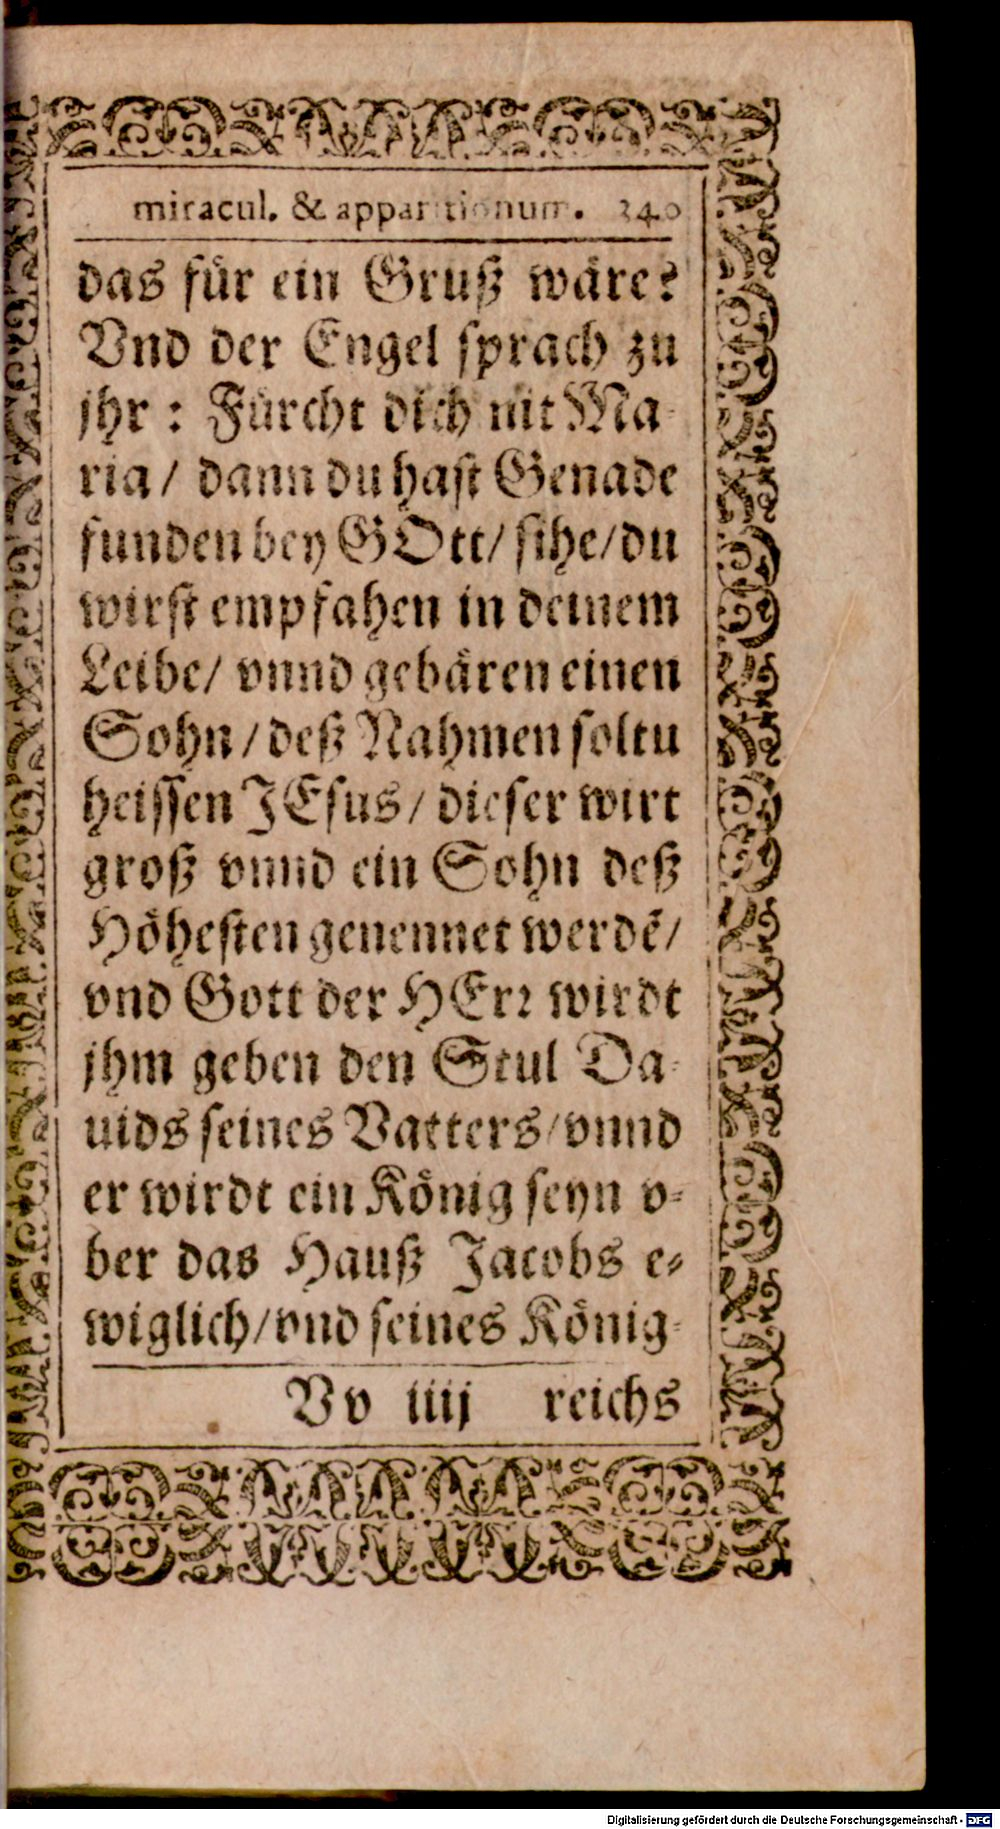 miracul. & apparitionum. 340
das für ein Gruß wäre?
Vnd der Engel sprach zu
jhr : Fürcht dich nit Ma-
ria/ dann du hast Genade
funden bey GOtt/ sihe/ du
wirst empfahen in deinem
Leibe/ vnnd gebären einen
Sohn/ deß Nahmen soltu
heissen JEsus/ dieser wirt
groß vnnd ein Sohn deß
Höhesten genennet werdẽ/
vnd Gott der HErr wirdt
jhm geben den Stul Da-
uids seines Vatters/ vnnd
er wirdt ein König seyn v-
ber das Hauß Jacobs e-
wiglich/ vnd seines König-
Vv iiij reichs
Digitalisierung gefördert durch die Deutsche Forschungsgemeinschaft - DFG